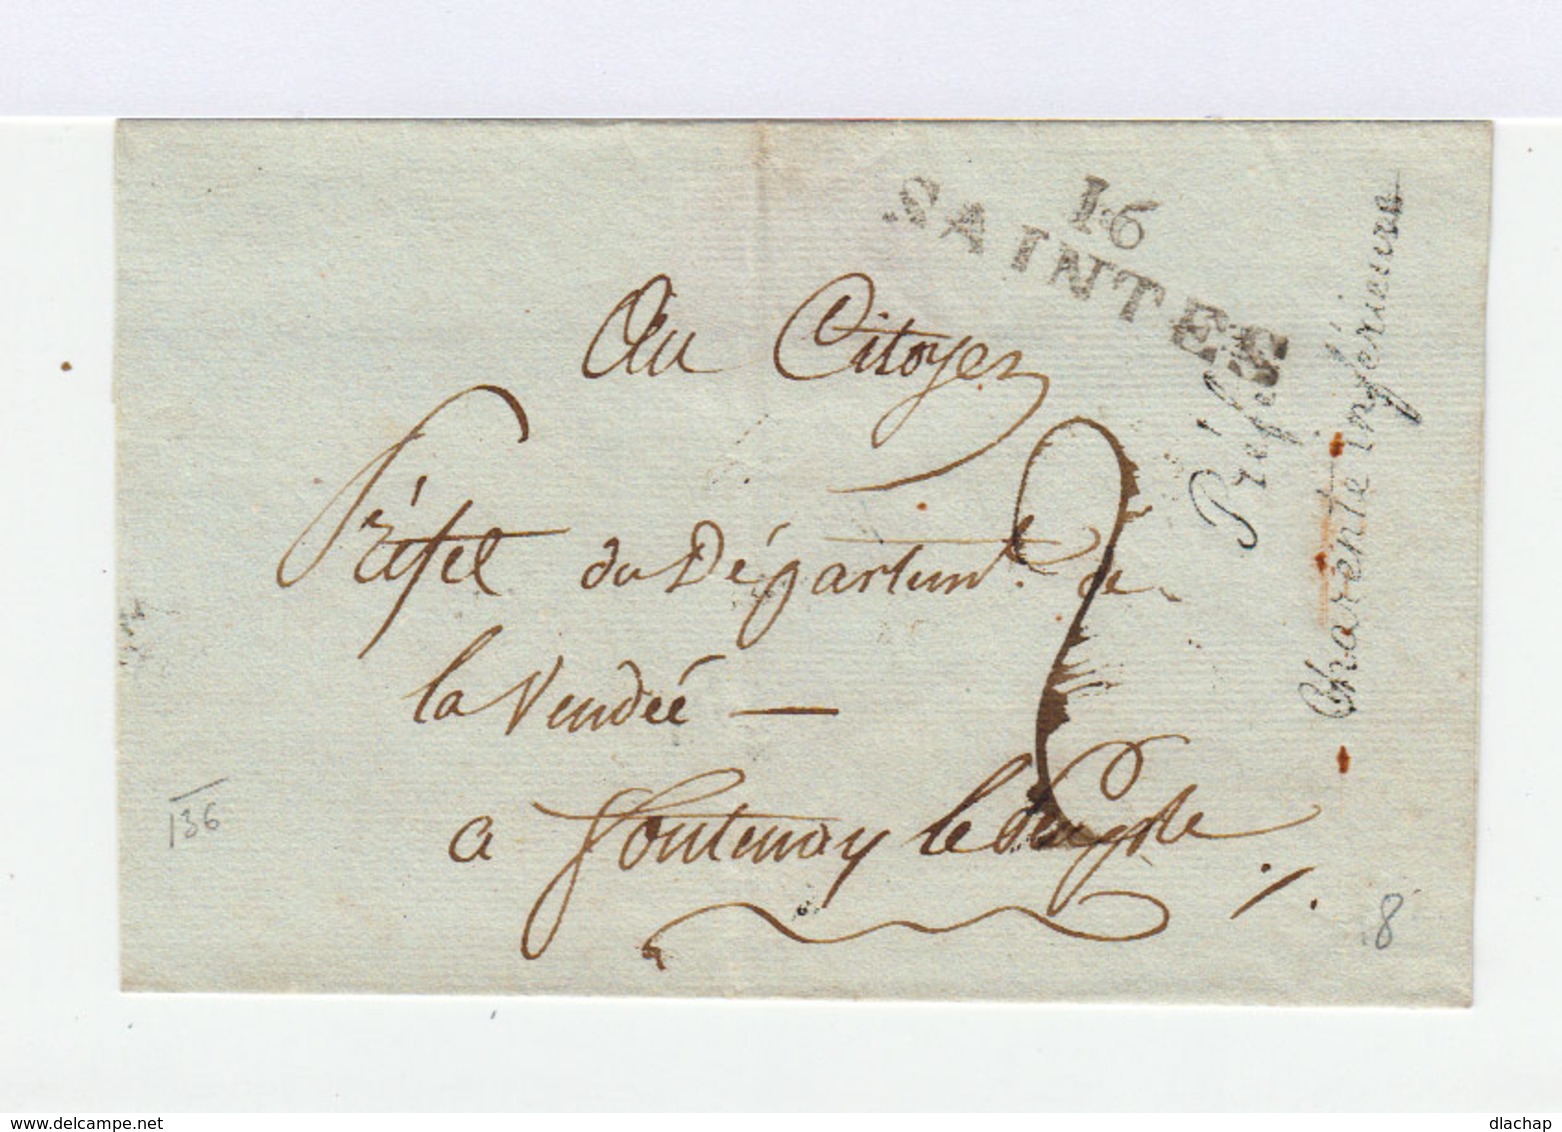 16
SAINTES
Préfet
Charente inférieure
Au Citoyen
Préfet du Départemt. de
la Vendée —
a Fontenay le Peuple
2
136
8
www.delcampe.net
dlachap